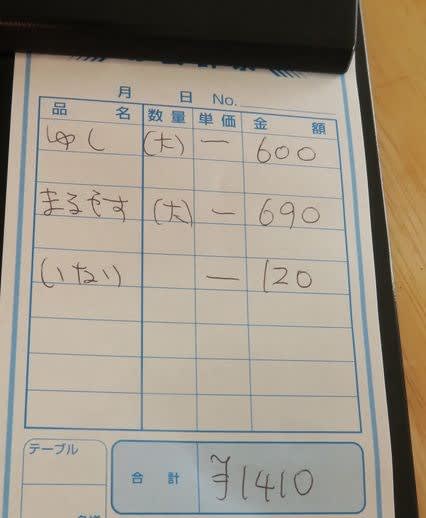 月 日 No.
品 名 数量 単価 金 額
ゆし (大) ー 600
まるそす (大) ー 690
(いなり) ー 120
テーブル
合 計 ¥1410